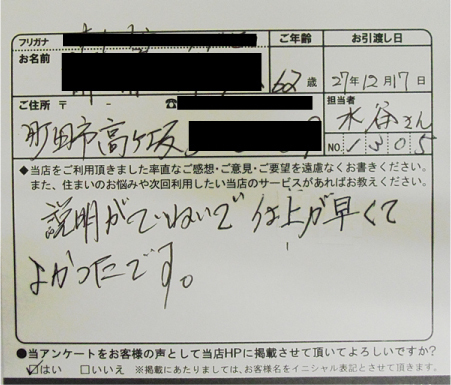 フリガナ ご年齢 お引渡し日
お名前 62歳 27年12月17日
ご住所 〒 - ☎ 担当者 水谷さん
町田市高ヶ坂 NO. 1305
◆当店をご利用頂きました率直なご感想・ご意見・ご要望を遠慮なくお書きください。
また、住まいのお悩みや次回利用したい当店のサービスがあればお教えください。
説明がていねいで 仕上が早くて
よかったです。
●当アンケートをお客様の声として当店HPに掲載させて頂いてよろしいですか?
☑はい □いいえ ※掲載にあたりましては、お客様名をイニシャル表記とさせて頂きます。